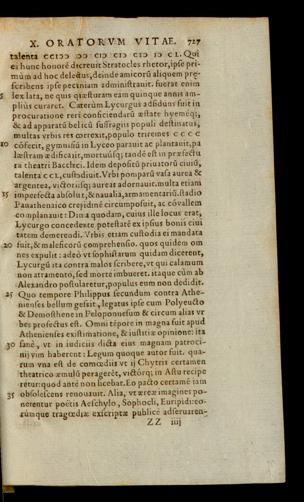 X. ORATORVM VITAE. 727
talenta CCIƆƆ ƆƆ CIƆ CIƆ CIƆ CIƆ CL. Qui
ei hunc honorē decreuit Stratocles rhetor, ipse pri-
mùm ad hoc delectus, deinde amicorū aliquem præ-
scribens ipse pecuniam administrauit. fuerat enim
5 lex lata, ne quis quæsturam eam quinque annis am-
plius curaret. Caterùm Lycurgus adsiduus fuit in
procuratione reri conficiendarū æstate hyeméq;
& ad apparatū belicū suffragiis populi destinatus,
multas vrbis res correxit, populo triremes CCCC
10 cōfecit, gymnasiū in Lyceo parauit ac plantauit, pa
læstram ædificauit, mortuúsq; tandē est in præfectu
ra theatri Bacchci. Idem depositū priuatorū ciuiū,
talenta CCL, custodiuit. Vrbi pompæ vasa aurea &
argentea, victoriisq; aureas adornauit. multa etiam
15 imperfecta absoluit, & naualia, armamentariū. stadio
Panathenaico crepidinē circumposuit, ac cōuallem
complanauit: Dima quodam, cuius ille locus erat,
Lycurgo concedente potestatē ex ipsius bonis ciui
tatem demerendi. Vrbis etiam custodia ei mandata
20 fuit, & maleficorū comprehensio. quos quidem om
nes expulit: adeò vt sophistarum quidam dicerent,
Lycurgū ita contra malos scribere, vt qui calamum
non atramento, sed morte imbueret. itaque cùm ab
Alexandro postularetur, populus eum non dedidit.
25 Quo tempore Philippus secundum contra Athe-
nienses bellum gessit, legatus ipse cum Polyeucto
& Demosthene in Peloponnesum & circum alias vr
bes profectus est. Omni tēpore in magna fuit apud
Athenienses existimatione, & iustitiæ opinione: ita
30 sanè, vt in iudiciis dicta eius magnam patroci-
nij vim haberent: Legum quoque autor fuit. qua-
rum vna est de comœdiis vt ij Chytris certamen
theatrico æmulū peragerēt, victórq; in Astu recipe
retur: quod antè non licebat. Eo pacto certamē iam
35 obsolescens renouauit. Alia, vt æreæ imagines po-
nerentur poëtis Aeschylo, Sophocli, Euripidi: eo-
rúmque tragœdiæ exscriptæ publicè adseruaren-
ZZ iiij